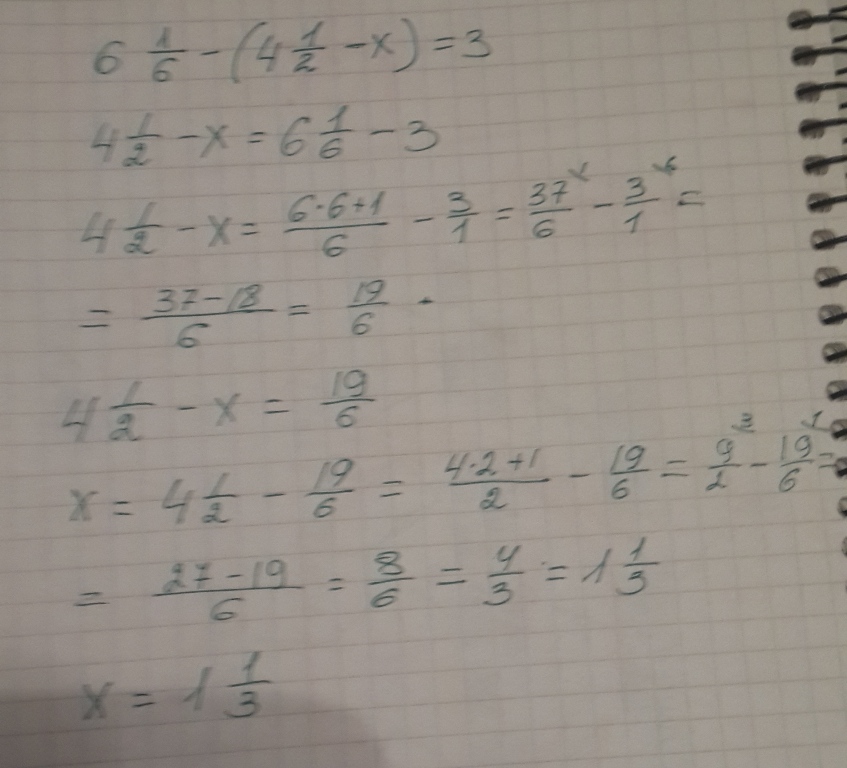 6 1/6 - (4 1/2 - x) = 3
4 1/2 - x = 6 1/6 - 3
4 1/2 - x = (6·6+1)/6 - 3/1 = 37/6 - 3/1 =
= (37-18)/6 = 19/6 .
4 1/2 - x = 19/6
x = 4 1/2 - 19/6 = (4·2+1)/2 - 19/6 = 9/2 - 19/6 =
= (27-19)/6 = 8/6 = 4/3 = 1 1/3
x = 1 1/3